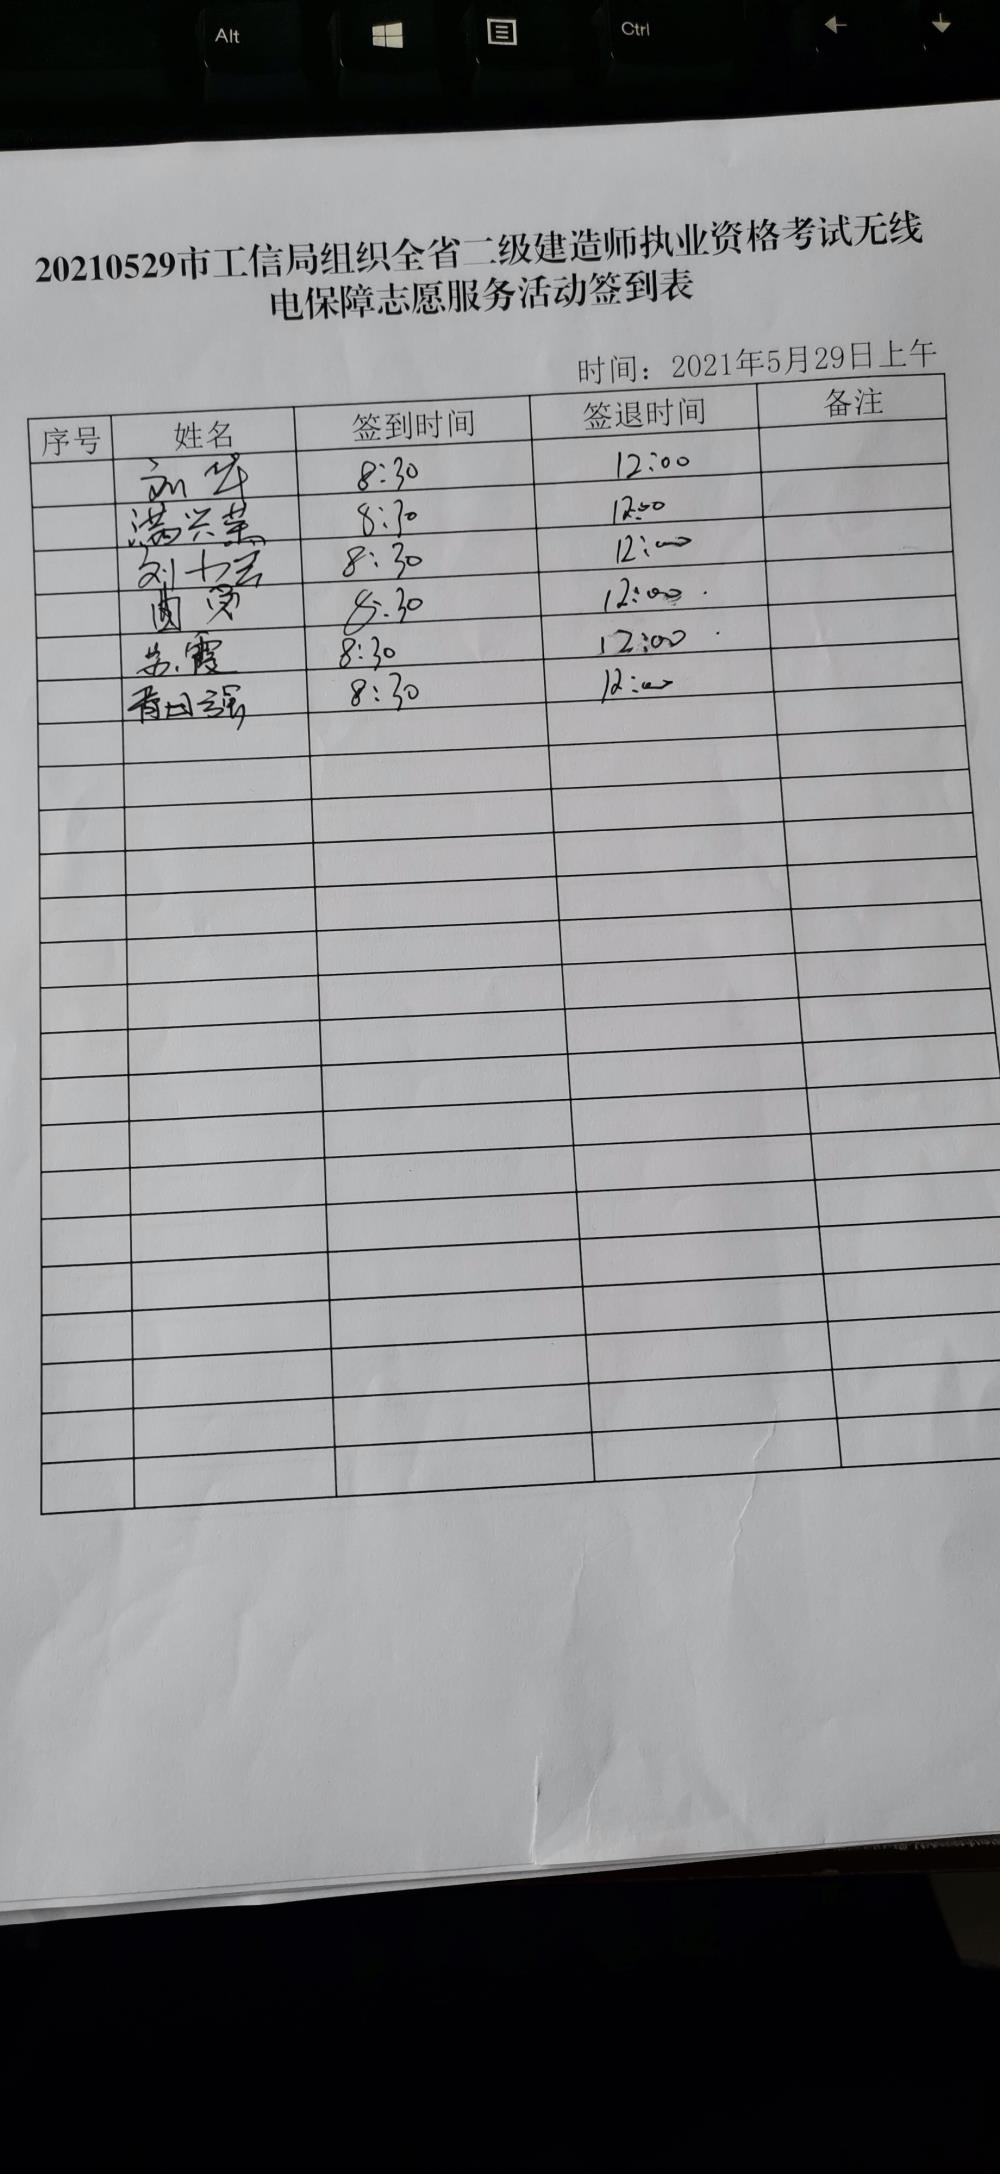 Alt
Ctrl
20210529市工信局组织全省二级建造师执业资格考试无线
电保障志愿服务活动签到表
时间：2021年5月29日上午
序号 姓名 签到时间 签退时间 备注
刘华 8:30 12:00
满兴荣 8:30 12:00
刘 8:30 12:00
曲 8:30 12:00
苏霞 8:30 12:00
强 8:30 12:00